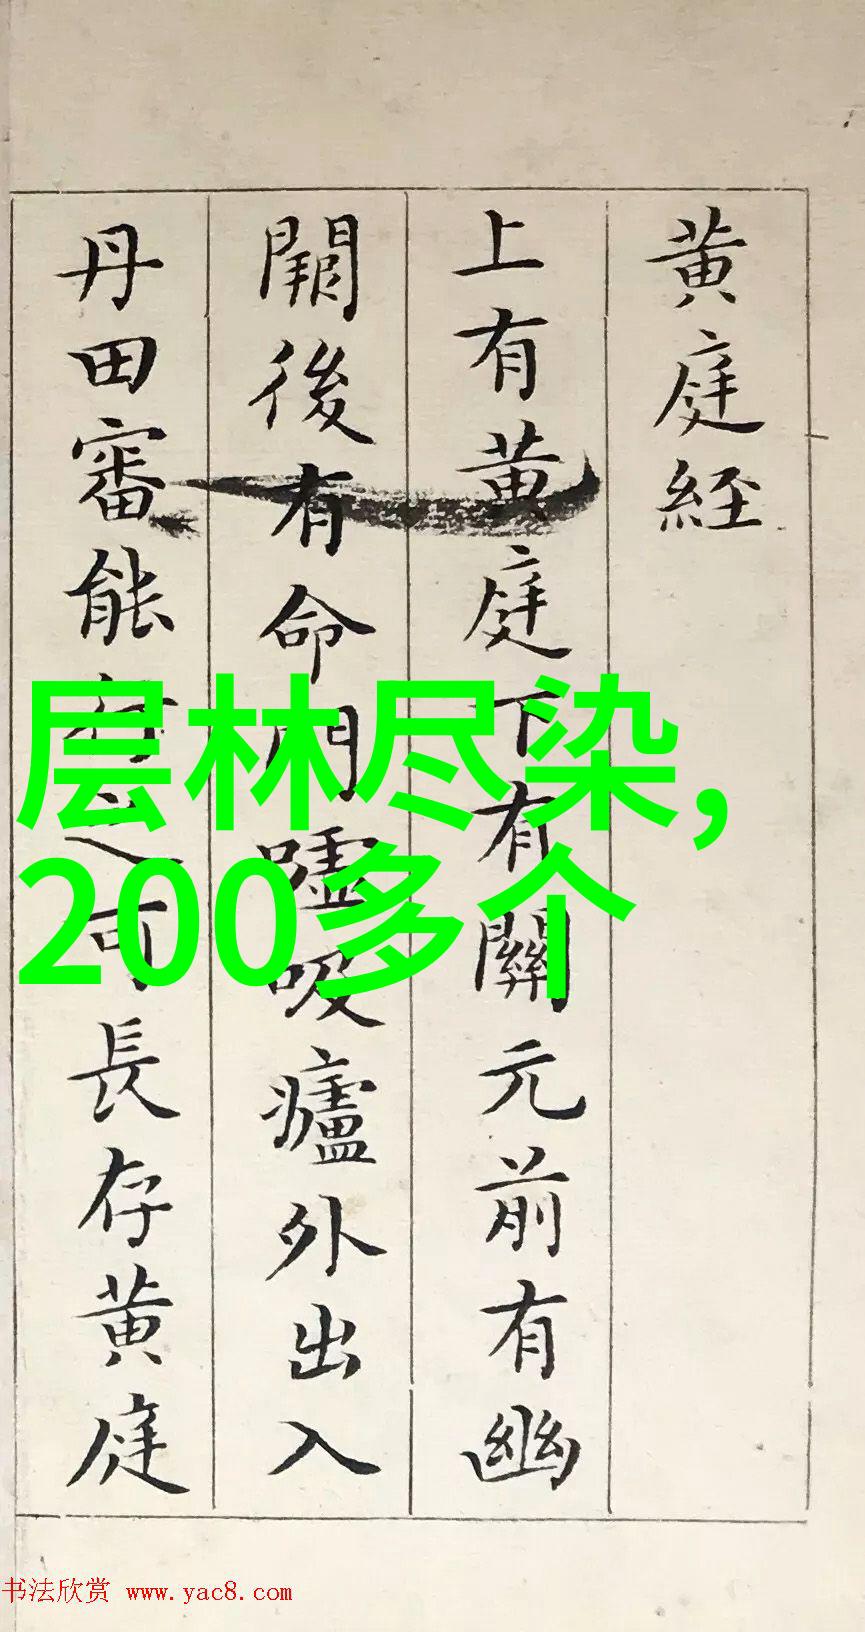 黄庭経
上有黄庭下有關元前有幽
闕後有命門嘘吸廬外出入
丹田審能行之可長存黄庭
层林尽染,
200多个
书法欣赏 www.yac8.com